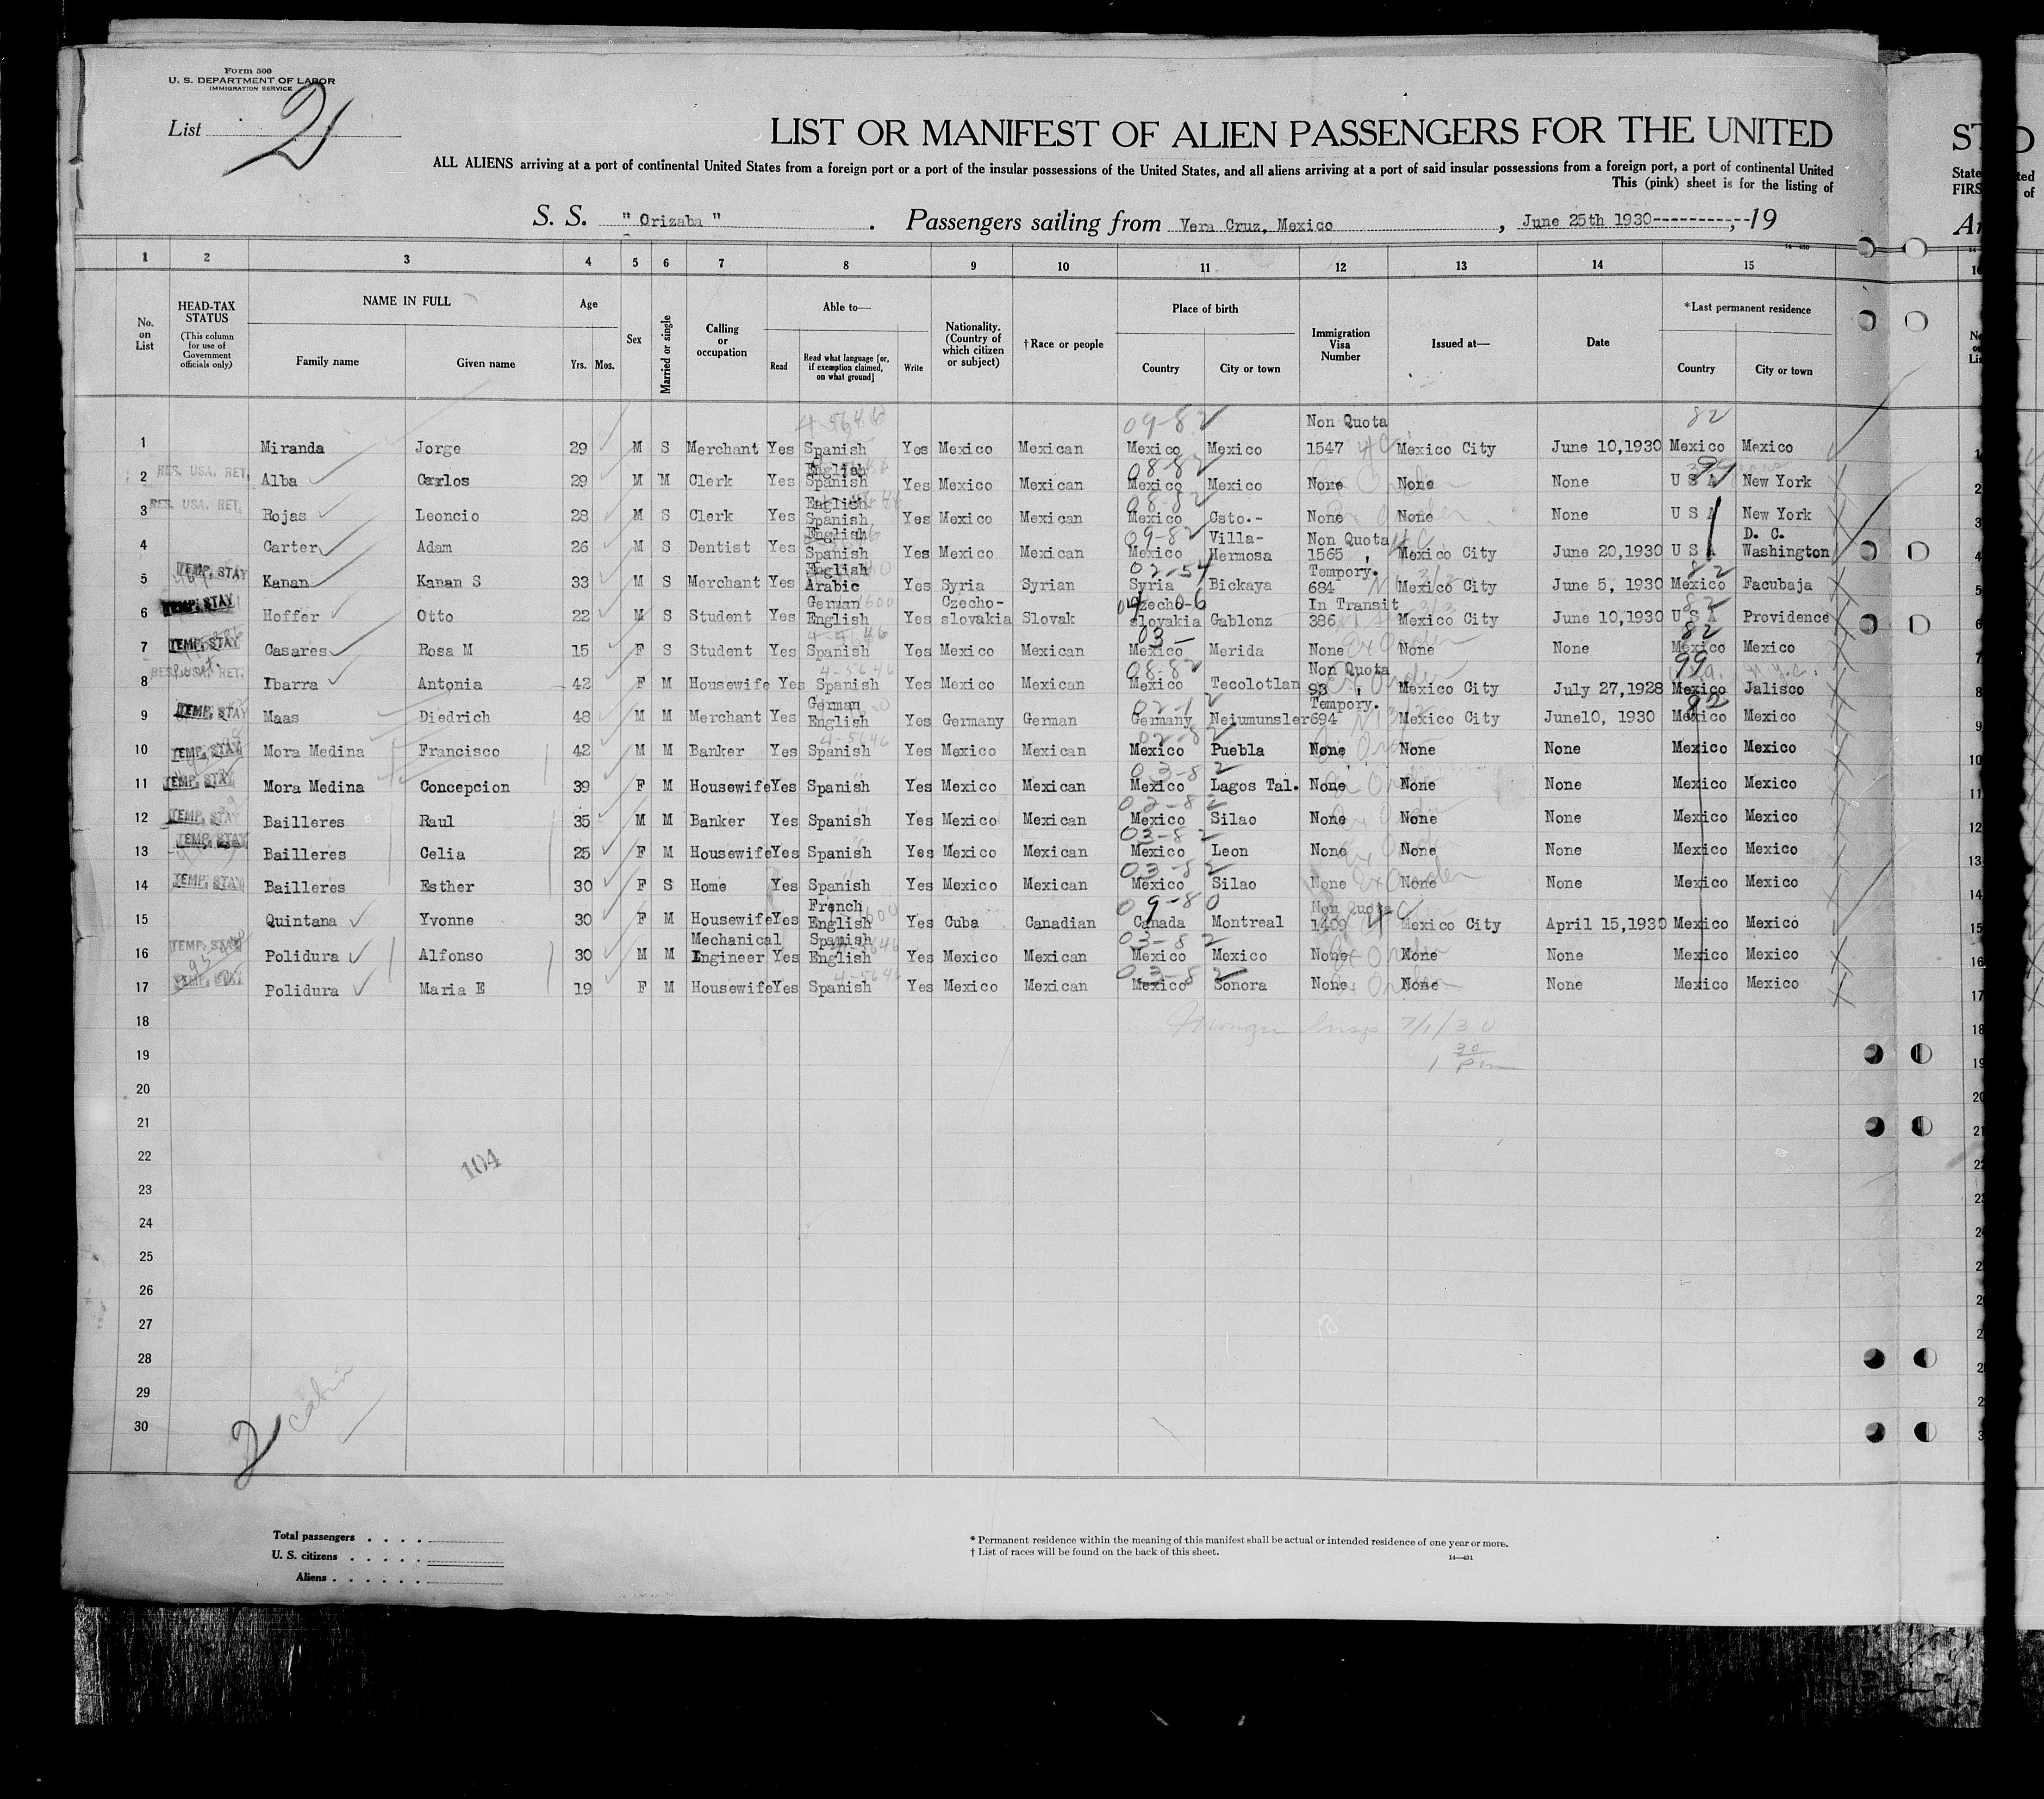 Form 500
U. S. DEPARTMENT OF LABOR
IMMIGRATION SERVICE
List 2
LIST OR MANIFEST OF ALIEN PASSENGERS FOR THE UNITED
ALL ALIENS arriving at a port of continental United States from a foreign port or a port of the insular possessions of the United States, and all aliens arriving at a port of said insular possessions from a foreign port, a port of continental United
This (pink) sheet is for the listing of
S. S. " Orizaba " . Passengers sailing from Vera Cruz, Mexico , June 25th 1930-----------, 19
1 2 3 4 5 6 7 8 9 10 11 12 13 14 15
No. on List
HEAD-TAX STATUS (This column for use of Government officials only)
NAME IN FULL Family name Given name
Age Yrs. Mos.
Sex
Married or single
Calling or occupation
Able to— Read Read what language [or, if exemption claimed, on what ground] Write
Nationality. (Country of which citizen or subject)
†Race or people
Place of birth Country City or town
Immigration Visa Number
Issued at—
Date
*Last permanent residence Country City or town
1 Miranda Jorge 29 M S Merchant Yes Spanish Yes Mexico Mexican Mexico Mexico Non Quota 1547 Mexico City June 10,1930 Mexico Mexico
2 RES. USA. RET. Alba Carlos 29 M M Clerk Yes English Spanish Yes Mexico Mexican Mexico Mexico None None None U S A New York
3 RES. USA. RET. Rojas Leoncio 28 M S Clerk Yes English Spanish Yes Mexico Mexican Mexico Gsto.- None None None U S A New York
4 Carter Adam 26 M S Dentist Yes English Spanish Yes Mexico Mexican Mexico Villa-Hermosa Non Quota 1565 Mexico City June 20,1930 U S A D. C. Washington
5 TEMP. STAY Kanan Kanan S 33 M S Merchant Yes English Arabic Yes Syria Syrian Syria Bickaya Tempory. 684 Mexico City June 5, 1930 Mexico Facubaja
6 TEMP. STAY Hoffer Otto 22 M S Student Yes German English Yes Czecho-slovakia Slovak Czecho-slovakia Gablonz In Transit 386 Mexico City June 10,1930 U S A Providence
7 TEMP. STAY Casares Rosa M 15 F S Student Yes Spanish Yes Mexico Mexican Mexico Merida None None None Mexico Mexico
8 RES. USA. RET. Ibarra Antonia 42 F M Housewife Yes Spanish Yes Mexico Mexican Mexico Tecolotlan Non Quota 93 Mexico City July 27,1928 Mexico Jalisco
9 TEMP. STAY Maas Diedrich 48 M M Merchant Yes German English Yes Germany German Germany Neiumunsler Tempory. 694 Mexico City June10, 1930 Mexico Mexico
10 TEMP. STAY Mora Medina Francisco 42 M M Banker Yes Spanish Yes Mexico Mexican Mexico Puebla None None None Mexico Mexico
11 TEMP. STAY Mora Medina Concepcion 39 F M Housewife Yes Spanish Yes Mexico Mexican Mexico Lagos Tal. None None None Mexico Mexico
12 TEMP. STAY Bailleres Raul 35 M M Banker Yes Spanish Yes Mexico Mexican Mexico Silao None None None Mexico Mexico
13 TEMP. STAY Bailleres Celia 25 F M Housewife Yes Spanish Yes Mexico Mexican Mexico Leon None None None Mexico Mexico
14 TEMP. STAY Bailleres Esther 30 F S Home Yes Spanish Yes Mexico Mexican Mexico Silao None None None Mexico Mexico
15 Quintana Yvonne 30 F M Housewife Yes French English Yes Cuba Canadian Canada Montreal Non Quota 1409 Mexico City April 15,1930 Mexico Mexico
16 TEMP. STAY Polidura Alfonso 30 M M Mechanical Engineer Yes Spanish English Yes Mexico Mexican Mexico Mexico None None None Mexico Mexico
17 TEMP. STAY Polidura Maria E 19 F M Housewife Yes Spanish Yes Mexico Mexican Mexico Sonora None None None Mexico Mexico
18 7/1/30
19 1 30 Pm
20
21
22 104
23
24
25
26
27
28
29 Cabin
30 2
Total passengers . . . .
U. S. citizens . . . . .
Aliens . . . . . .
* Permanent residence within the meaning of this manifest shall be actual or intended residence of one year or more.
† List of races will be found on the back of this sheet.
14—431